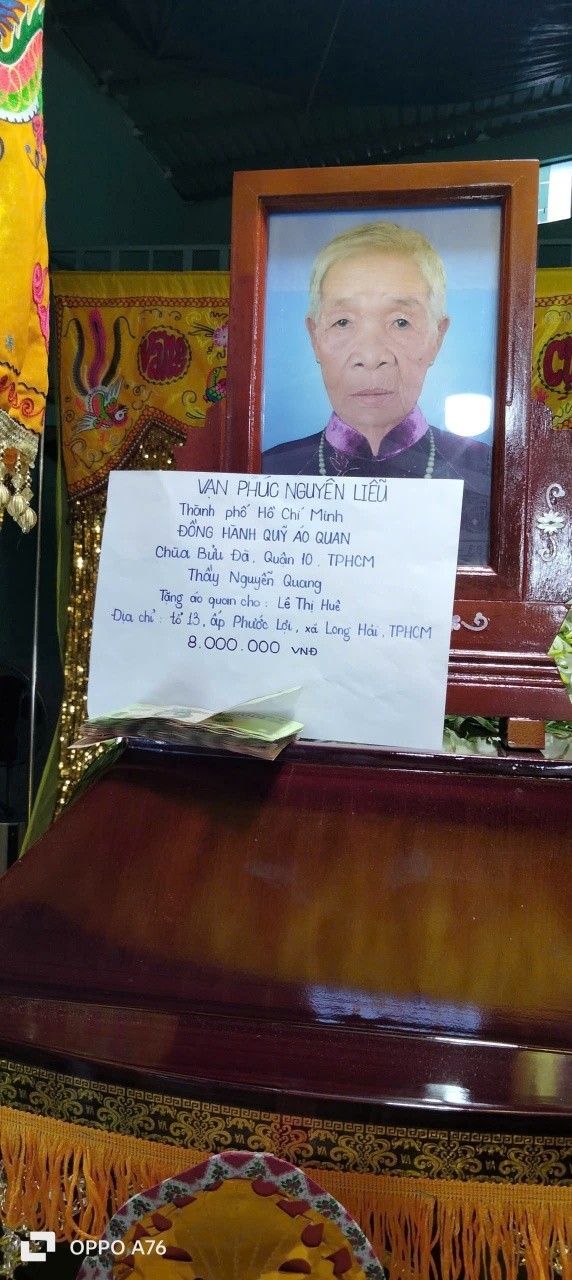 VẠN PHÚC NGUYÊN LIỄU
Thành phố Hồ Chí Minh
ĐỒNG HÀNH QUỸ ÁO QUAN
Chùa Bửu Đà, Quận 10, TPHCM
Thầy Nguyễn Quang
Tặng áo quan cho: Lê Thị Huê
Địa chỉ: tổ 13, ấp Phước Lợi, xã Long Hải, TPHCM
8.000.000 VNĐ
OPPO A76